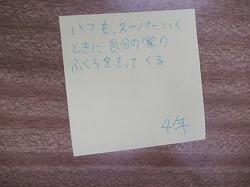 いつも、スーパーいく
ときに自分の家の
ふくろをもってくる
4年